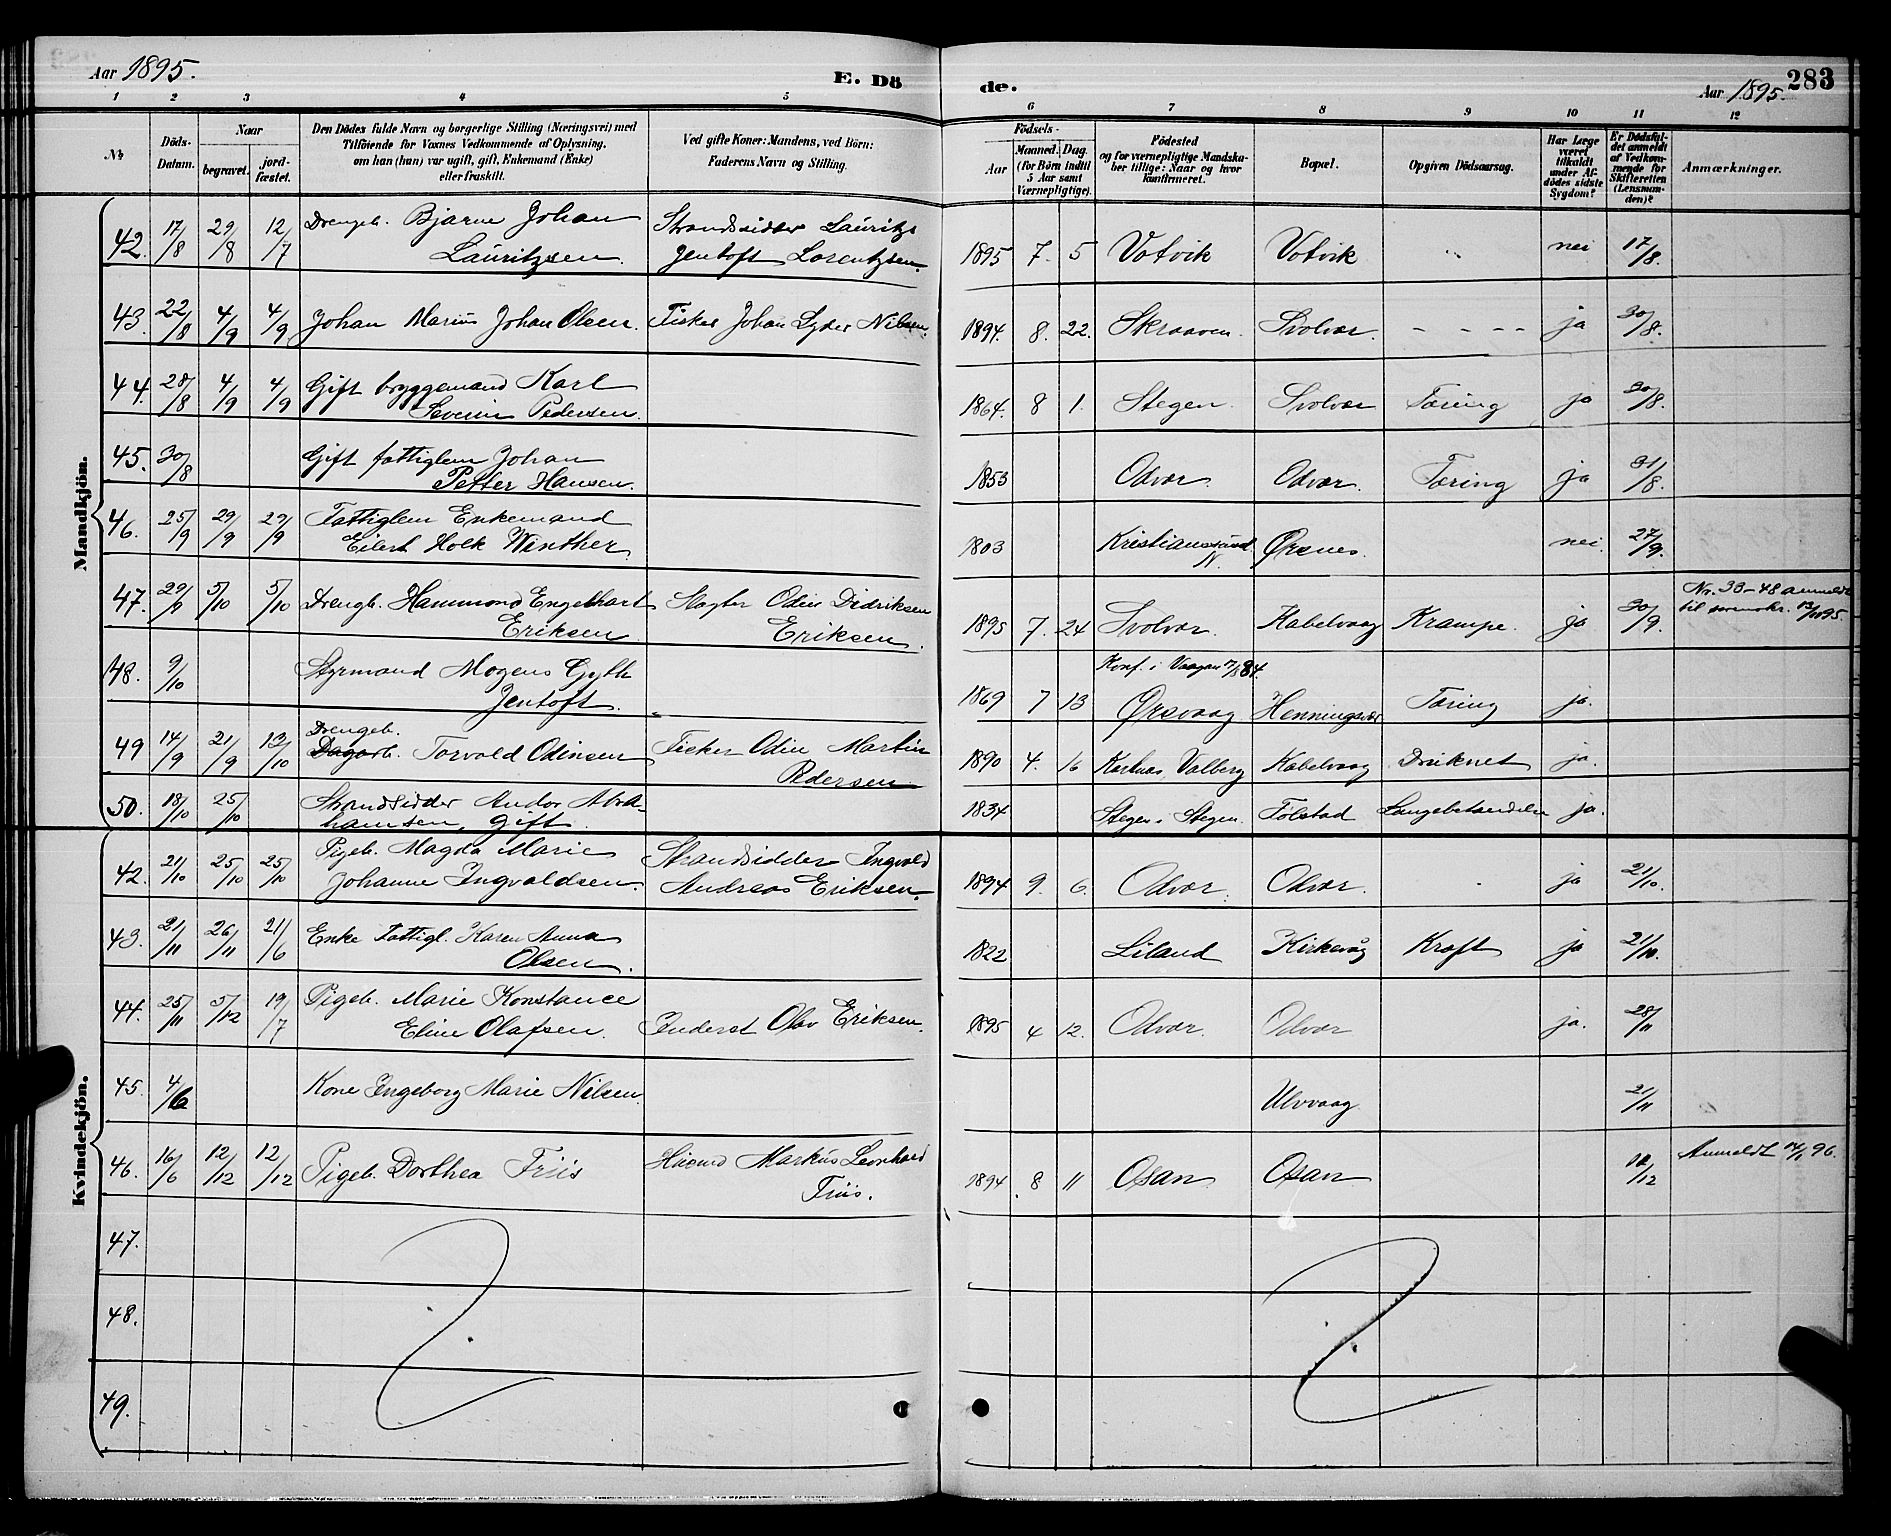 Aar 1895.
E. Dö
de.
Aar 1895.
283
1 2 3 4 5 6 7 8 9 10 11 12
Nr
Döds-Datum.
Naar
begravet.
jord-fæstet.
Den Dödes fulde Navn og borgerlige Stilling (Næringsvei) med
Tilföiende for Voxnes Vedkommende af Oplysning,
om han (hun) var ugift, gift, Enkemand (Enke)
eller fraskilt.
Ved gifte Koner: Mandens, ved Börn:
Faderens Navn og Stilling.
Födsels-
Aar
Maaned. Dag.
(for Börn indtil
5 Aar samt
Værnepligtige).
Födested
og for værnepligtige Mandska-
ber tillige: Naar og hvor
konfirmeret.
Bopæl.
Opgiven Dödsaarsag.
Har Læge
været
tilkaldt
under Af-
dödes sidste
Sygdom?
Er Dödsfal-
det anmeldt
af Vedkom-
mende for
Skifteretten
(Lensman-
den)?
Anmærkninger.
Mandkjön.
42. 17/8 29/8 12/7 Drengb. Bjarne Johan Strandsidder Lauritz
Lauritzsen. Jentoft Lorentzsen. 1895 7. 5 Votvik Votvik " nei 17/8.
43. 22/8 4/9 4/9 Johan Marius Johan Olsen. Fisker Johan Lyder Nilsen. 1894. 8. 22. Skraaven. Svolvær. - - - - ja 30/8.
44. 28/8 4/9 4/9 Gift bryggemand Karl
Severin Pedersen. 1864. 8 1. Stegen. Svolvær Tæring ja 30/8.
45. 30/8 Gift fattiglem Johan
Petter Hansen. 1853 Odvær. Odvær. Tæring ja 31/8.
46. 25/9 29/9 29/9 Fattiglem Enkemand
Eilert Holk Winther. 1803 Kristianssund
N. Ørsnes. nei. 27/9.
47. 29/9 5/10 5/10 Drengb. Hammond Engelhart Slagter Odin Didriksen
Eriksen. Eriksen. 1895 7. 24 Svolvær. Kabelvaag Krampe. ja 30/9. Nr. 33-48 anmeldt
til 95.
48. 9/10 Styrmand Mogens Gyth
Jentoft. 1869 7 13 Konf. i Vaagan 84.
Ørsvaag Henningsvær Tæring ja.
49 14/9 21/9 13/10 Drengeb.
Torvald Odinsen Fisker Odin Martin
Pedersen 1890 4. 16 Valberg Kabelvaag Druknet ja.
50. 18/10 25/10 Strandsidder Andor Abra-
hamsen, gift. 1834 Stegen i Stegen. Følstad ja.
Kvindekjön.
42. 21/10 25/10 25/10 Pigeb. Magda Marie Strandsidder Ingvald
Johanne Ingvaldsen. Andreas Eriksen. 1894 9. 6. Odvær. Odvær. ja 21/10.
43. 21/11 26/11 21/6 Enke Fattigl. Karen Anna
Olsen. 1822 Liland Kirkevåg Kræft ja 21/10.
44. 25/11 5/12 19/7 Pigeb. Marie Konstance
Eline Olafsen. Inderst Olav Eriksen. 1895 4 12. Odvær. Odvær ja. 28/11
45. 4/6 Kone Ingeborg Marie Nilsen. Ulvvaag 21/11
46. 16/6 12/12 12/12 Pigeb. Dorthea Friis Husmd Markus Leonhard
Friis. 1894. 8 11 Osan Osan 12/12 Anmeldt 96.
47.
48.
49.